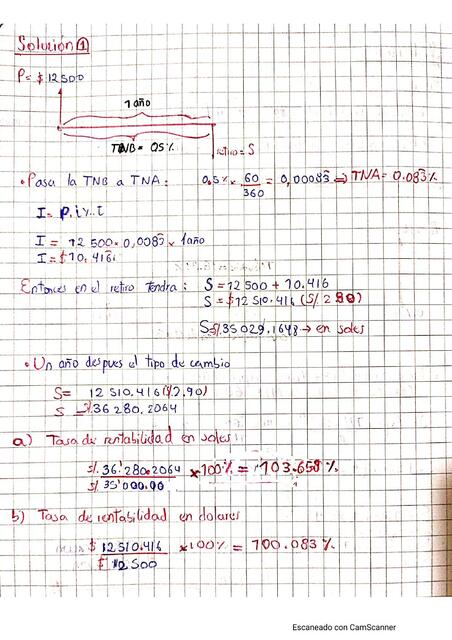 Solución ①
P= $ 12 500
1 año
TNB= 0.5%
retiro = S
• Pasa la TNB a TNA: 0,5% × 60/360 = 0,00083 ⇒ TNA= 0.083%
I = P. i
I = 12 500 × 0,0083 × 1año
I = $10.416
Entonces en el retiro tendra: S = 12 500 + 10.416
S = $12 510.416 (S/. 2.80)
S= S/.35 029.1648 → en soles
• Un año despues el tipo de cambio
S= 12 510.416 (2.90)
S = 36 280.2064
a) Tasa de rentabilidad en soles
S/. 36 280.2064 / S/. 35 000.00 × 100% = 103.658%
b) Tasa de rentabilidad en dolares
$ 12 510.416 / $ 12 500 × 100% = 100.083%
Escaneado con CamScanner